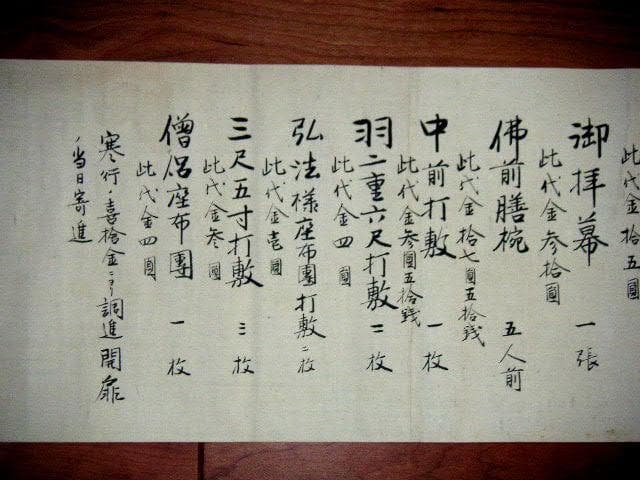 此代金 拾五圓
御拜幕 一張
此代金 参拾圓
佛前膳椀 五人前
此代金 拾七圓五拾銭
中前打敷 一枚
此代金 参圓五拾銭
羽二重六尺打敷 二枚
此代金 四圓
弘法様座布團打敷 二枚
此代金 壱圓
三尺五寸打敷 三枚
此代金 参圓
僧侶座布團 一枚
此代金 四圓
寒行ノ喜捨金ニヨリ調進開扉
ノ當日寄進